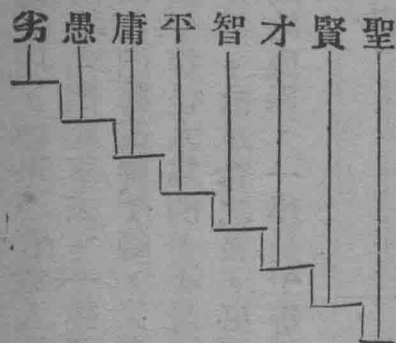 劣愚庸平智才賢聖